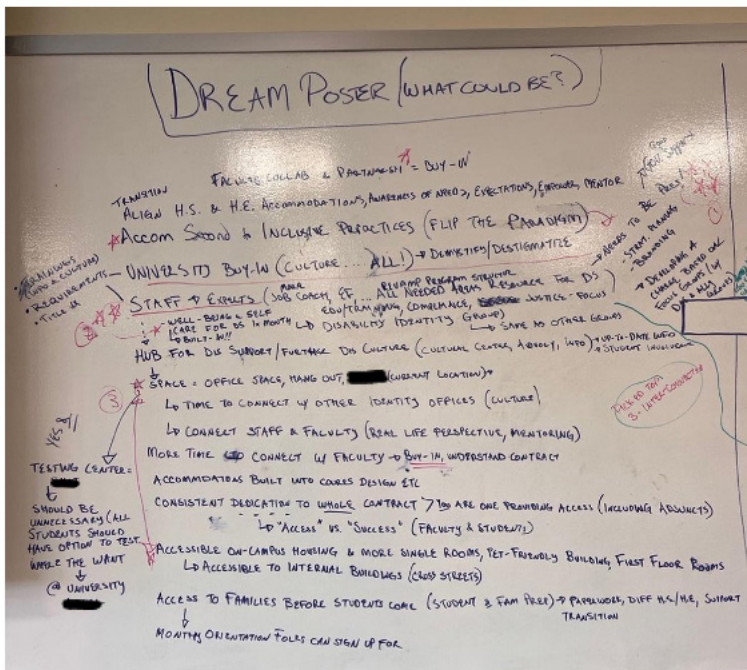 DREAM POSTER (WHAT COULD BE?)
FACULTY COLLAB & PARTNERSHIP = BUY-IN
TRANSITION
ALIGN H.S. & H.E. ACCOMMODATIONS, AWARENESS OF NEEDS, EXPECTATIONS, EMPOWER, MENTOR
ACCOM SECOND to INCLUSIVE PRACTICES (FLIP THE PARADIGM)
UNIVERSITY BUY-IN (CULTURE ... ALL!) → DEMYSTIFY/DESTIGMATIZE
TRAININGS
• REQUIREMENTS
• TITLE IX
REVAMP PROGRAM STRUCTURE
STAFF + EXPERTS (JOB COACH, EF, ... ALL NEEDED AREAS RESOURCE FOR DS)
COMPLIANCE, JUSTICE-FOCUS
WELL-BEING & SELF
CARE FOR DS 12 MONTH
BUILT-IN!!
DISABILITY IDENTITY GROUP
SAME AS OTHER GROUPS
HUB FOR DIS SUPPORT/FURTHER DIS CULTURE (CULTURAL CENTER, ADVOCY, INFO) → UP-TO-DATE INFO
STUDENT
SPACE = OFFICE SPACE, HANG OUT, (CURRENT LOCATION)
③
TIME TO CONNECT W/ OTHER IDENTITY OFFICES (CULTURE)
CONNECT STAFF & FACULTY (REAL LIFE PERSPECTIVE, MENTORING)
MORE TIME CONNECT W/ FACULTY → BUY-IN, UNDERSTAND CONTRACT
ACCOMMODATIONS BUILT INTO COURSE DESIGN ETC
CONSISTENT DEDICATION TO WHOLE CONTRACT > YOU ARE ONE PROVIDING ACCESS (INCLUDING ADJUNCTS)
"ACCESS" VS. "SUCCESS" (FACULTY & STUDENTS)
ACCESSIBLE ON-CAMPUS HOUSING & MORE SINGLE ROOMS, PET-FRIENDLY BUILDING, FIRST FLOOR ROOMS
ACCESSIBLE TO INTERNAL BUILDINGS (CROSS STREETS)
ACCESS TO FAMILIES BEFORE STUDENTS COME (STUDENT & FAM PREP) → PAPERWORK, DIFF H.S./H.E., SUPPORT
TRANSITION
MONTHLY ORIENTATION FOLKS CAN SIGN UP FOR
YES &//
TESTING CENTER =
SHOULD BE
UNNECESSARY (ALL
STUDENTS SHOULD
HAVE OPTION TO TEST
WHERE THE WANT
@ UNIVERSITY
NEEDS TO BE
STRAT. PLANNING
BRANDING
DEVELOPING A
CHANGE BASED ON
FOCUS GROUPS W/
PICKED TOP
3 - INTER-CONNECTED